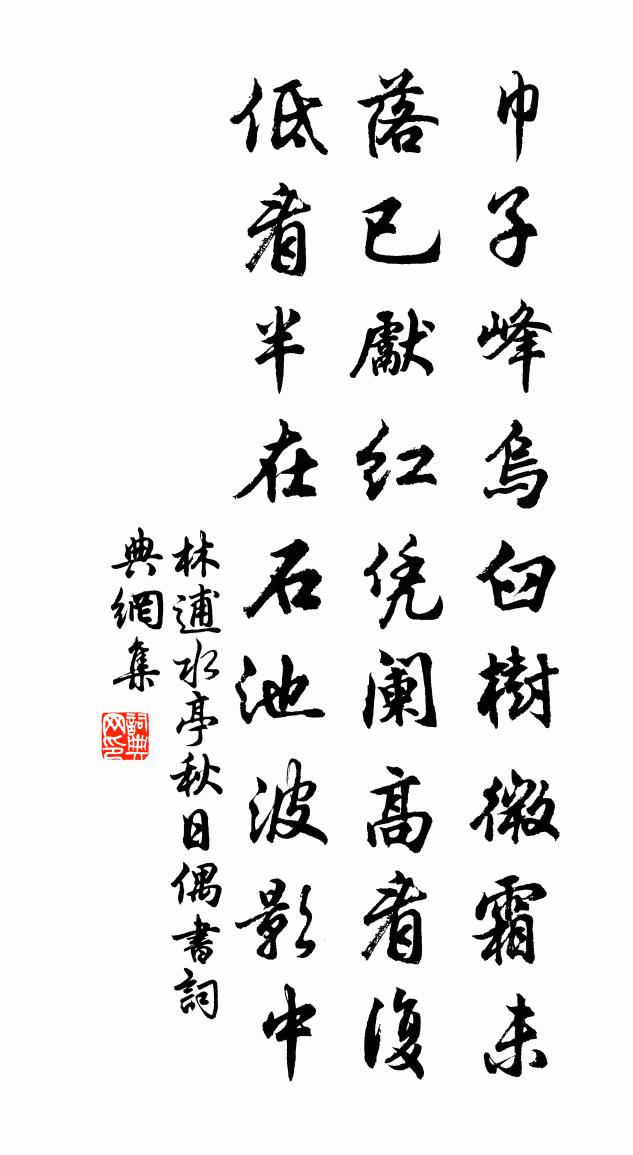 巾子峰烏臼樹微霜未
落已獻紅凭阑高看復
低看半在石池波影中
林逋水亭秋日偶書詞
典網集
詞典
网印